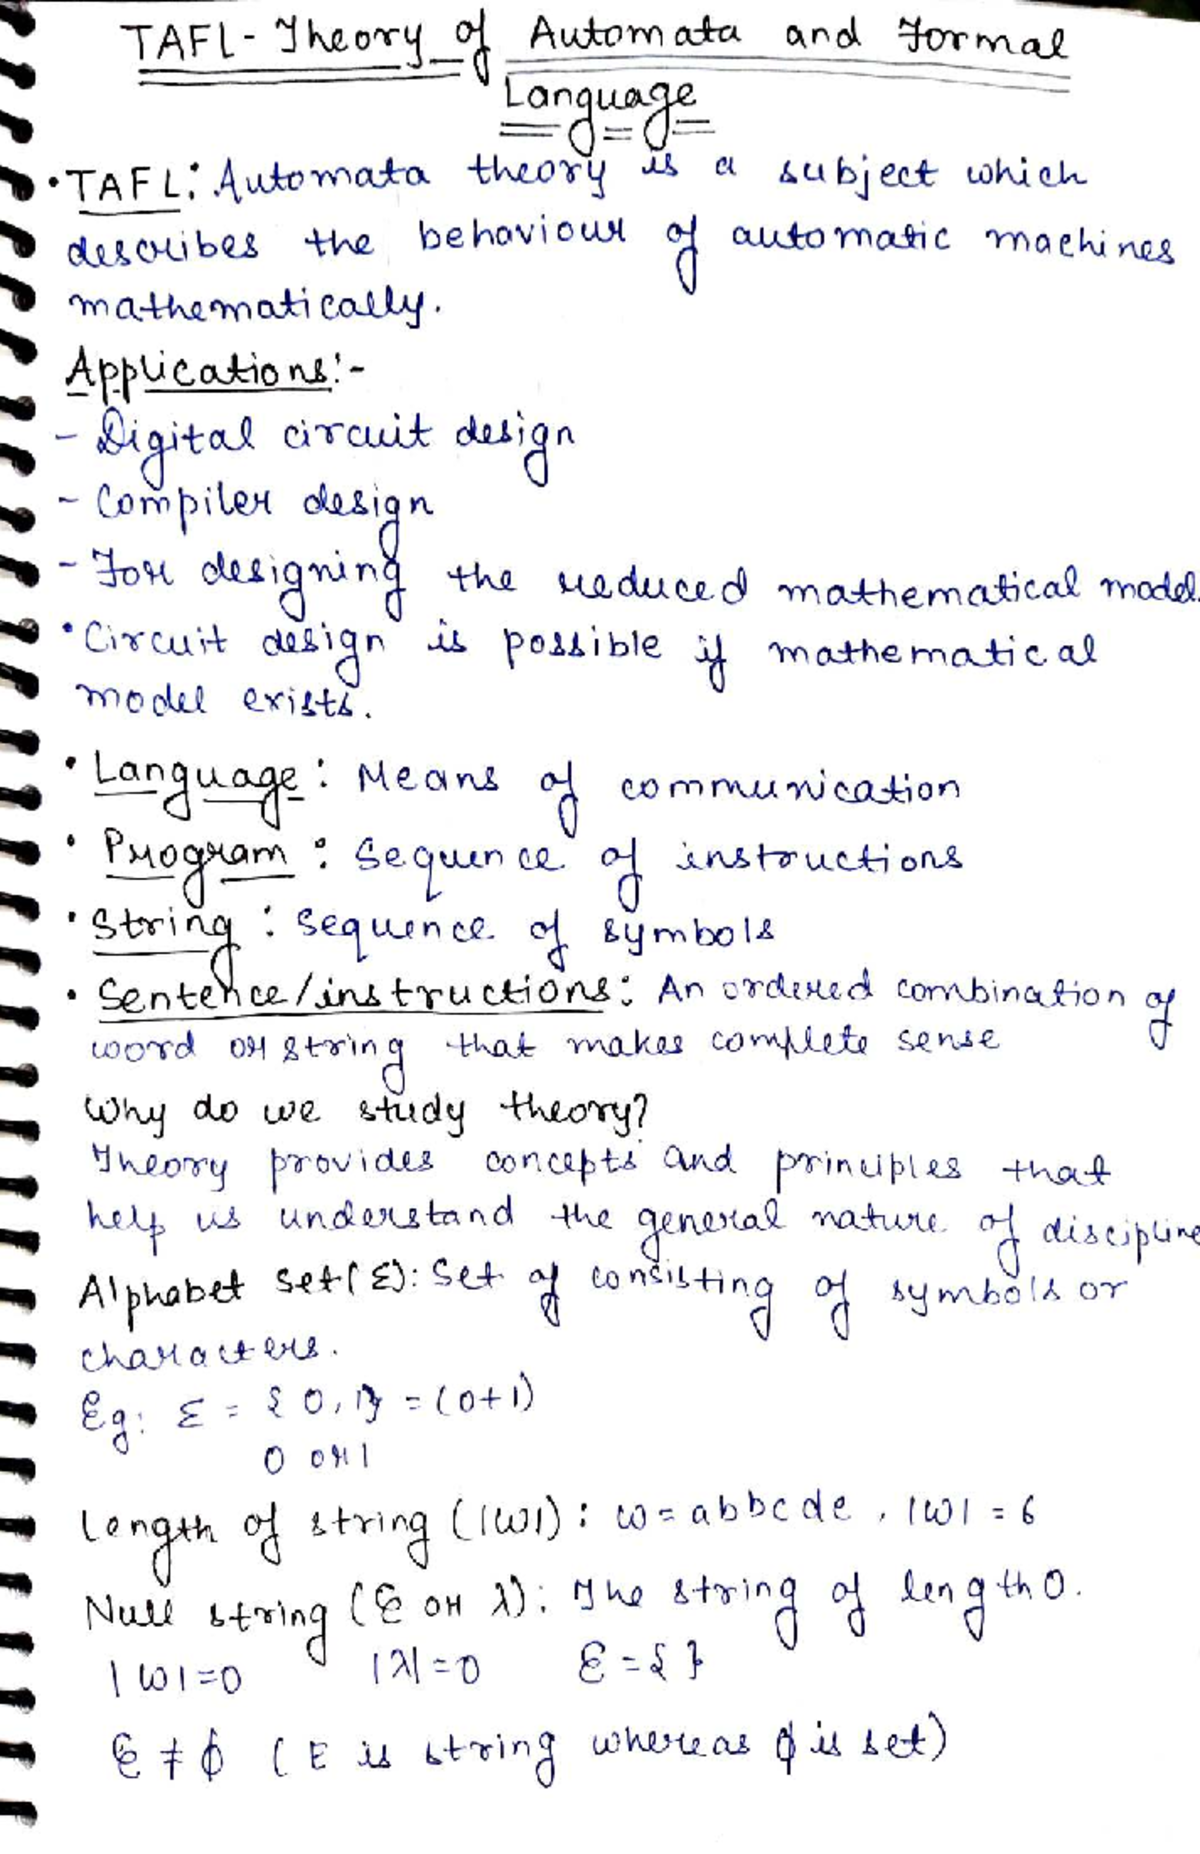 TAFL - Theory of Automata and Formal
Language
• TAFL: Automata theory is a subject which
describes the behaviour of automatic machines
mathematically.
Applications:-
- Digital circuit design
- Compiler design
- For designing the reduced mathematical model.
• Circuit design is possible if mathematical
model exists.
• Language: Means of communication
• Program: Sequence of instructions
• String: Sequence of symbols
• Sentence/instructions: An ordered combination of
word or string that makes complete sense
Why do we study theory?
Theory provides concepts and principles that
help us understand the general nature of discipline
Alphabet set(Σ): Set of consisting of symbols or
characters.
Eg: Σ = {0,1} = (0+1)
0 or 1
Length of string (|W|): ω = abbcde, |W| = 6
Null string (Ɛ or λ): The string of length 0.
|W|=0 |λ|=0 Ɛ = { }
Ɛ ≠ ϕ (E is string whereas ϕ is set)